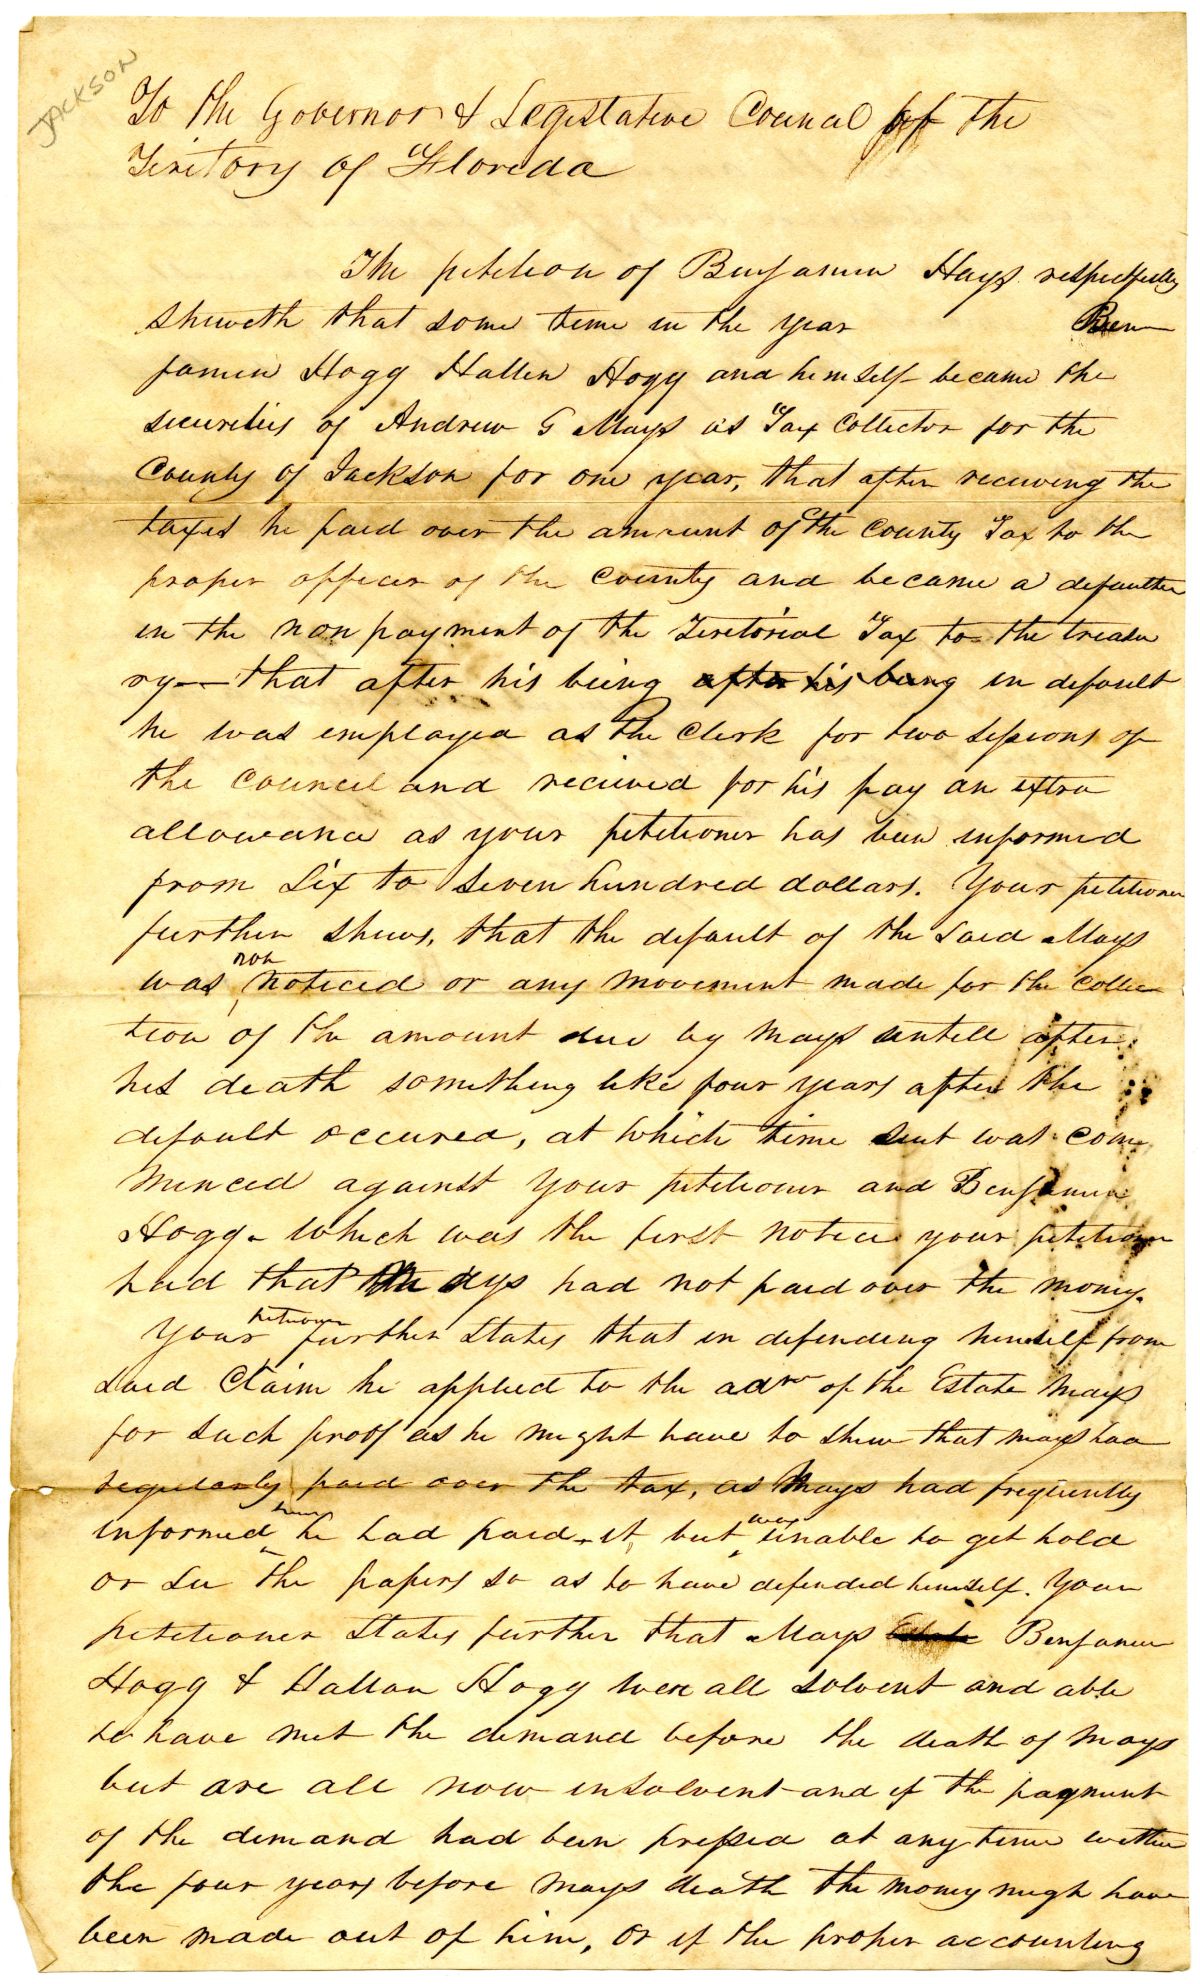 JACKSON
To the Governor & Legistative Council of the
Teritory of Floreda
The petition of Benjamin Hays respectfully
sheweth that some time in the year Ben
jamin Hogg Hallen Hogg and himself became the
securities of Andrew G Mays as Tax Collector for the
County of Jackson for one year, that after recieving the
taxes he paid over the amount of the County Tax to the
proper officer of the county and became a defaulter
in the non payment of the Teritorial Tax to the treasu
ry — that after his being after his being in default
he was employed as the Clerk for two sessions of
the Council and recieved for his pay an extra
allowance as your petitioner has been informed
from Six to Seven hundred dollars. Your petitioner
further shews, that the default of the Said Mays
was not noticed or any movement made for the collec
tion of the amount due by Mays untill after
his death something like four years after the
default occured, at which time suit was com
menced against your petitioner and Benjamin
Hogg. which was the first notice your petitioner
had that Mays had not paid over the money.
Your petitioner further States that in defending himself from
Said Claim he applied to the admr of the Estate Mays
for such proof as he might have to shew that Mays had
regularly paid over the tax, as Mays had frequently
informed him he had paid it, but was unable to get hold
or see the papers so as to have defended himself. Your
petitioner States further that Mays Estate Benjamin
Hogg & Hallan Hogg were all solvent and able
to have met the demand before the death of Mays
but are all now insolvent and if the payment
of the demand had been pressed at any time within
the four years before Mays death the money migh have
been made out of him, or if the proper accounting